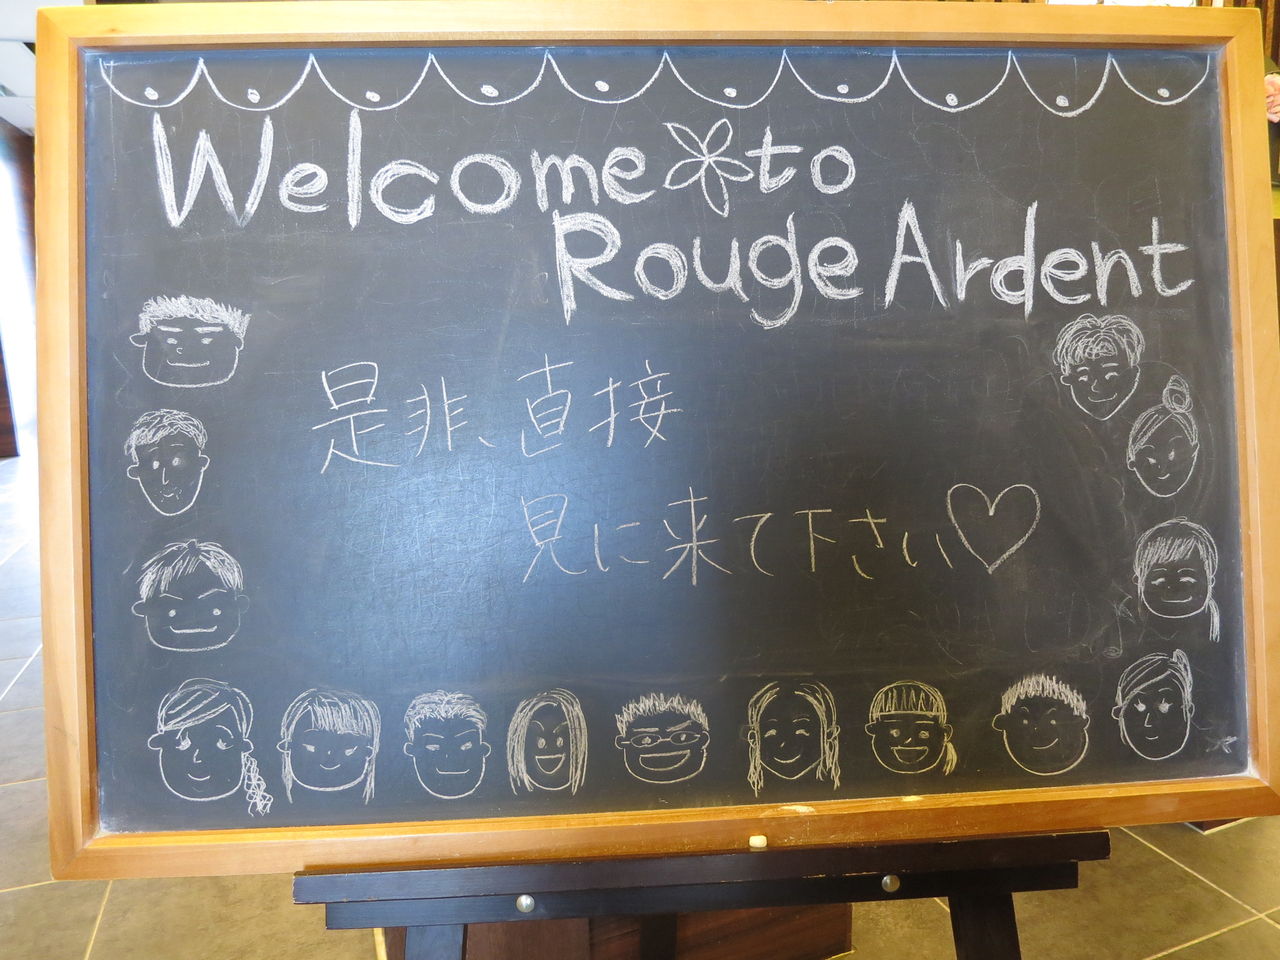 Welcome to
Rouge Ardent
是非、直接
見に来て下さい♡